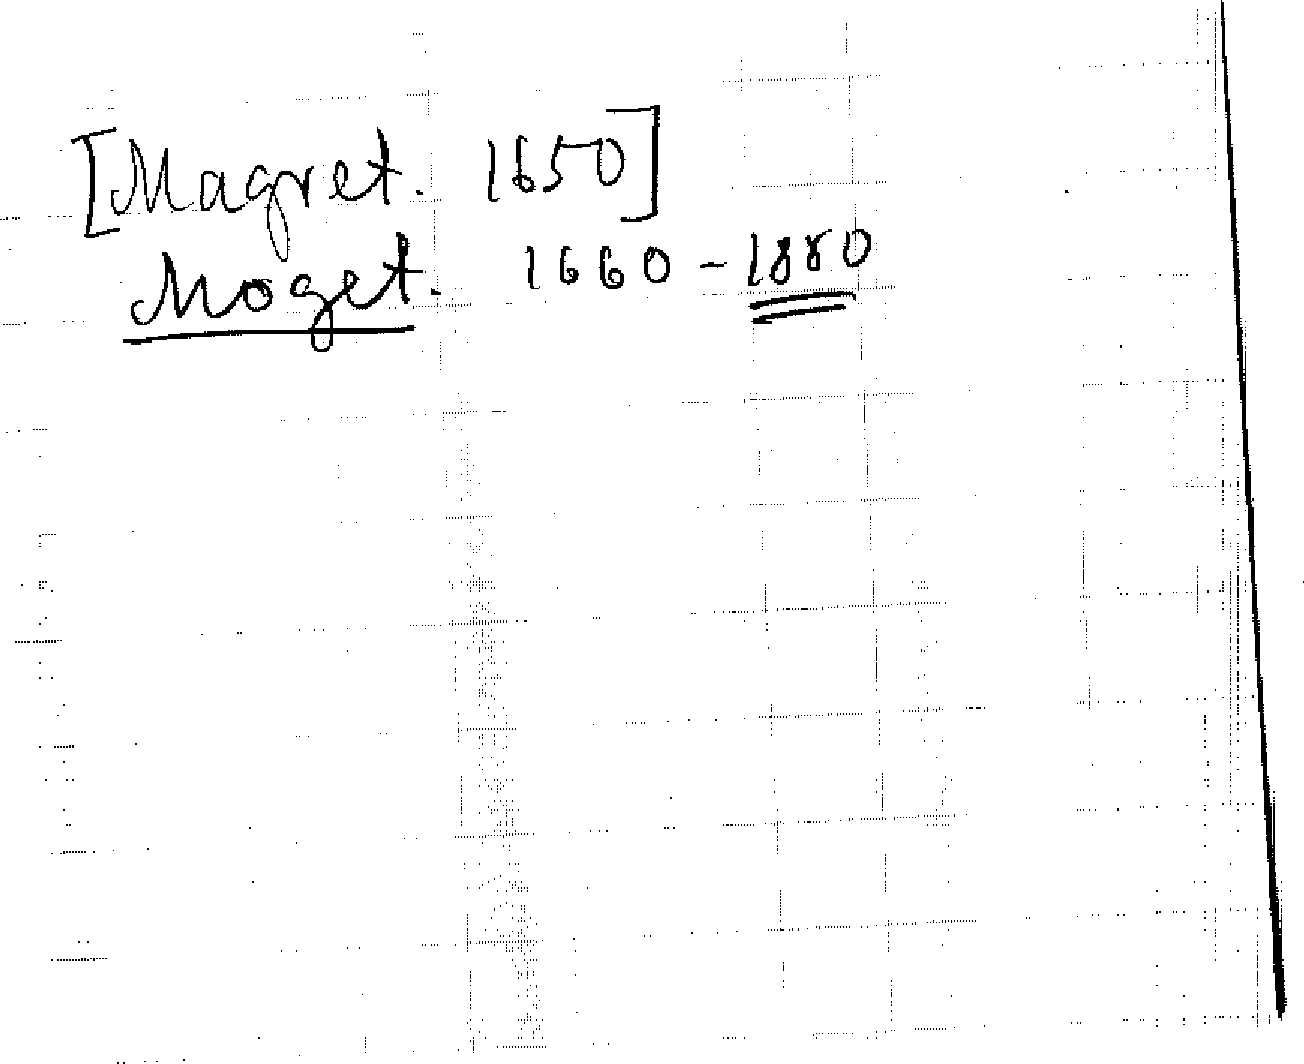 [Magret. 1650]
Moget. 1660 - 1880